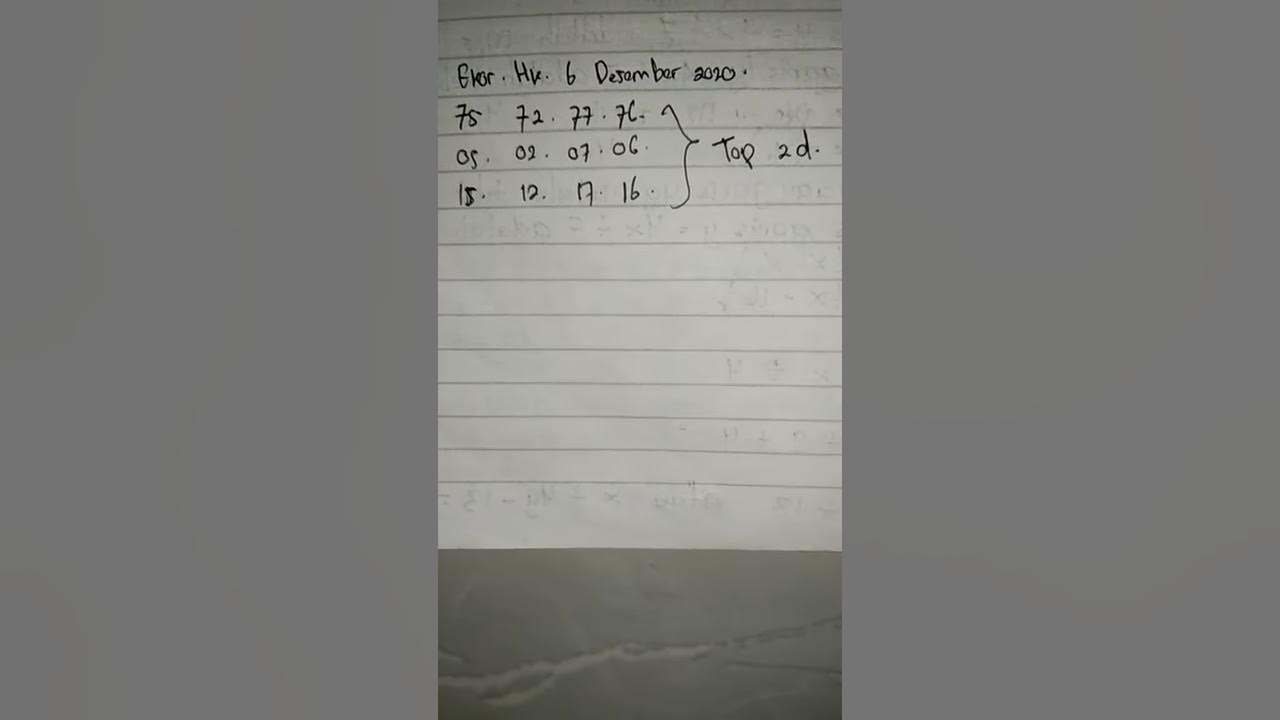 Ekor. Hk. 6 Desember 2020.
75 72. 77. 76.
05. 02. 07. 06.
15. 12. 17. 16.
Top 2d.